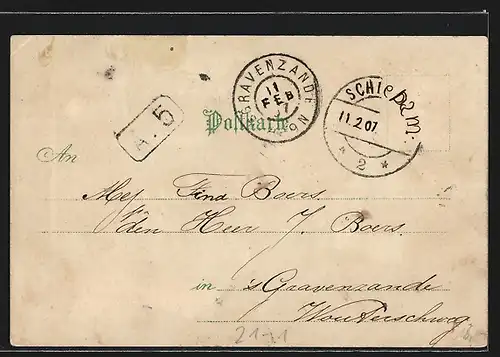 'SGRAVENZANDE
11
FEB
07
SCHIEpam.
11.2.07
* 2 *
A. 5
Postkarte
An
Mej Fina Boers.
p/a den Heer J. Boers.
in s Gravenzande
21-1